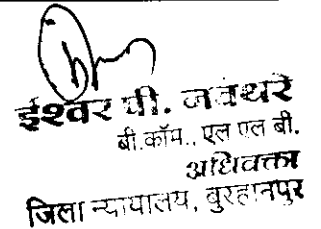 ईश्वर पी. जवथरे
बी.कॉम., एल एल बी.
अधिवक्ता
जिला न्यायालय, बुरहानपुर